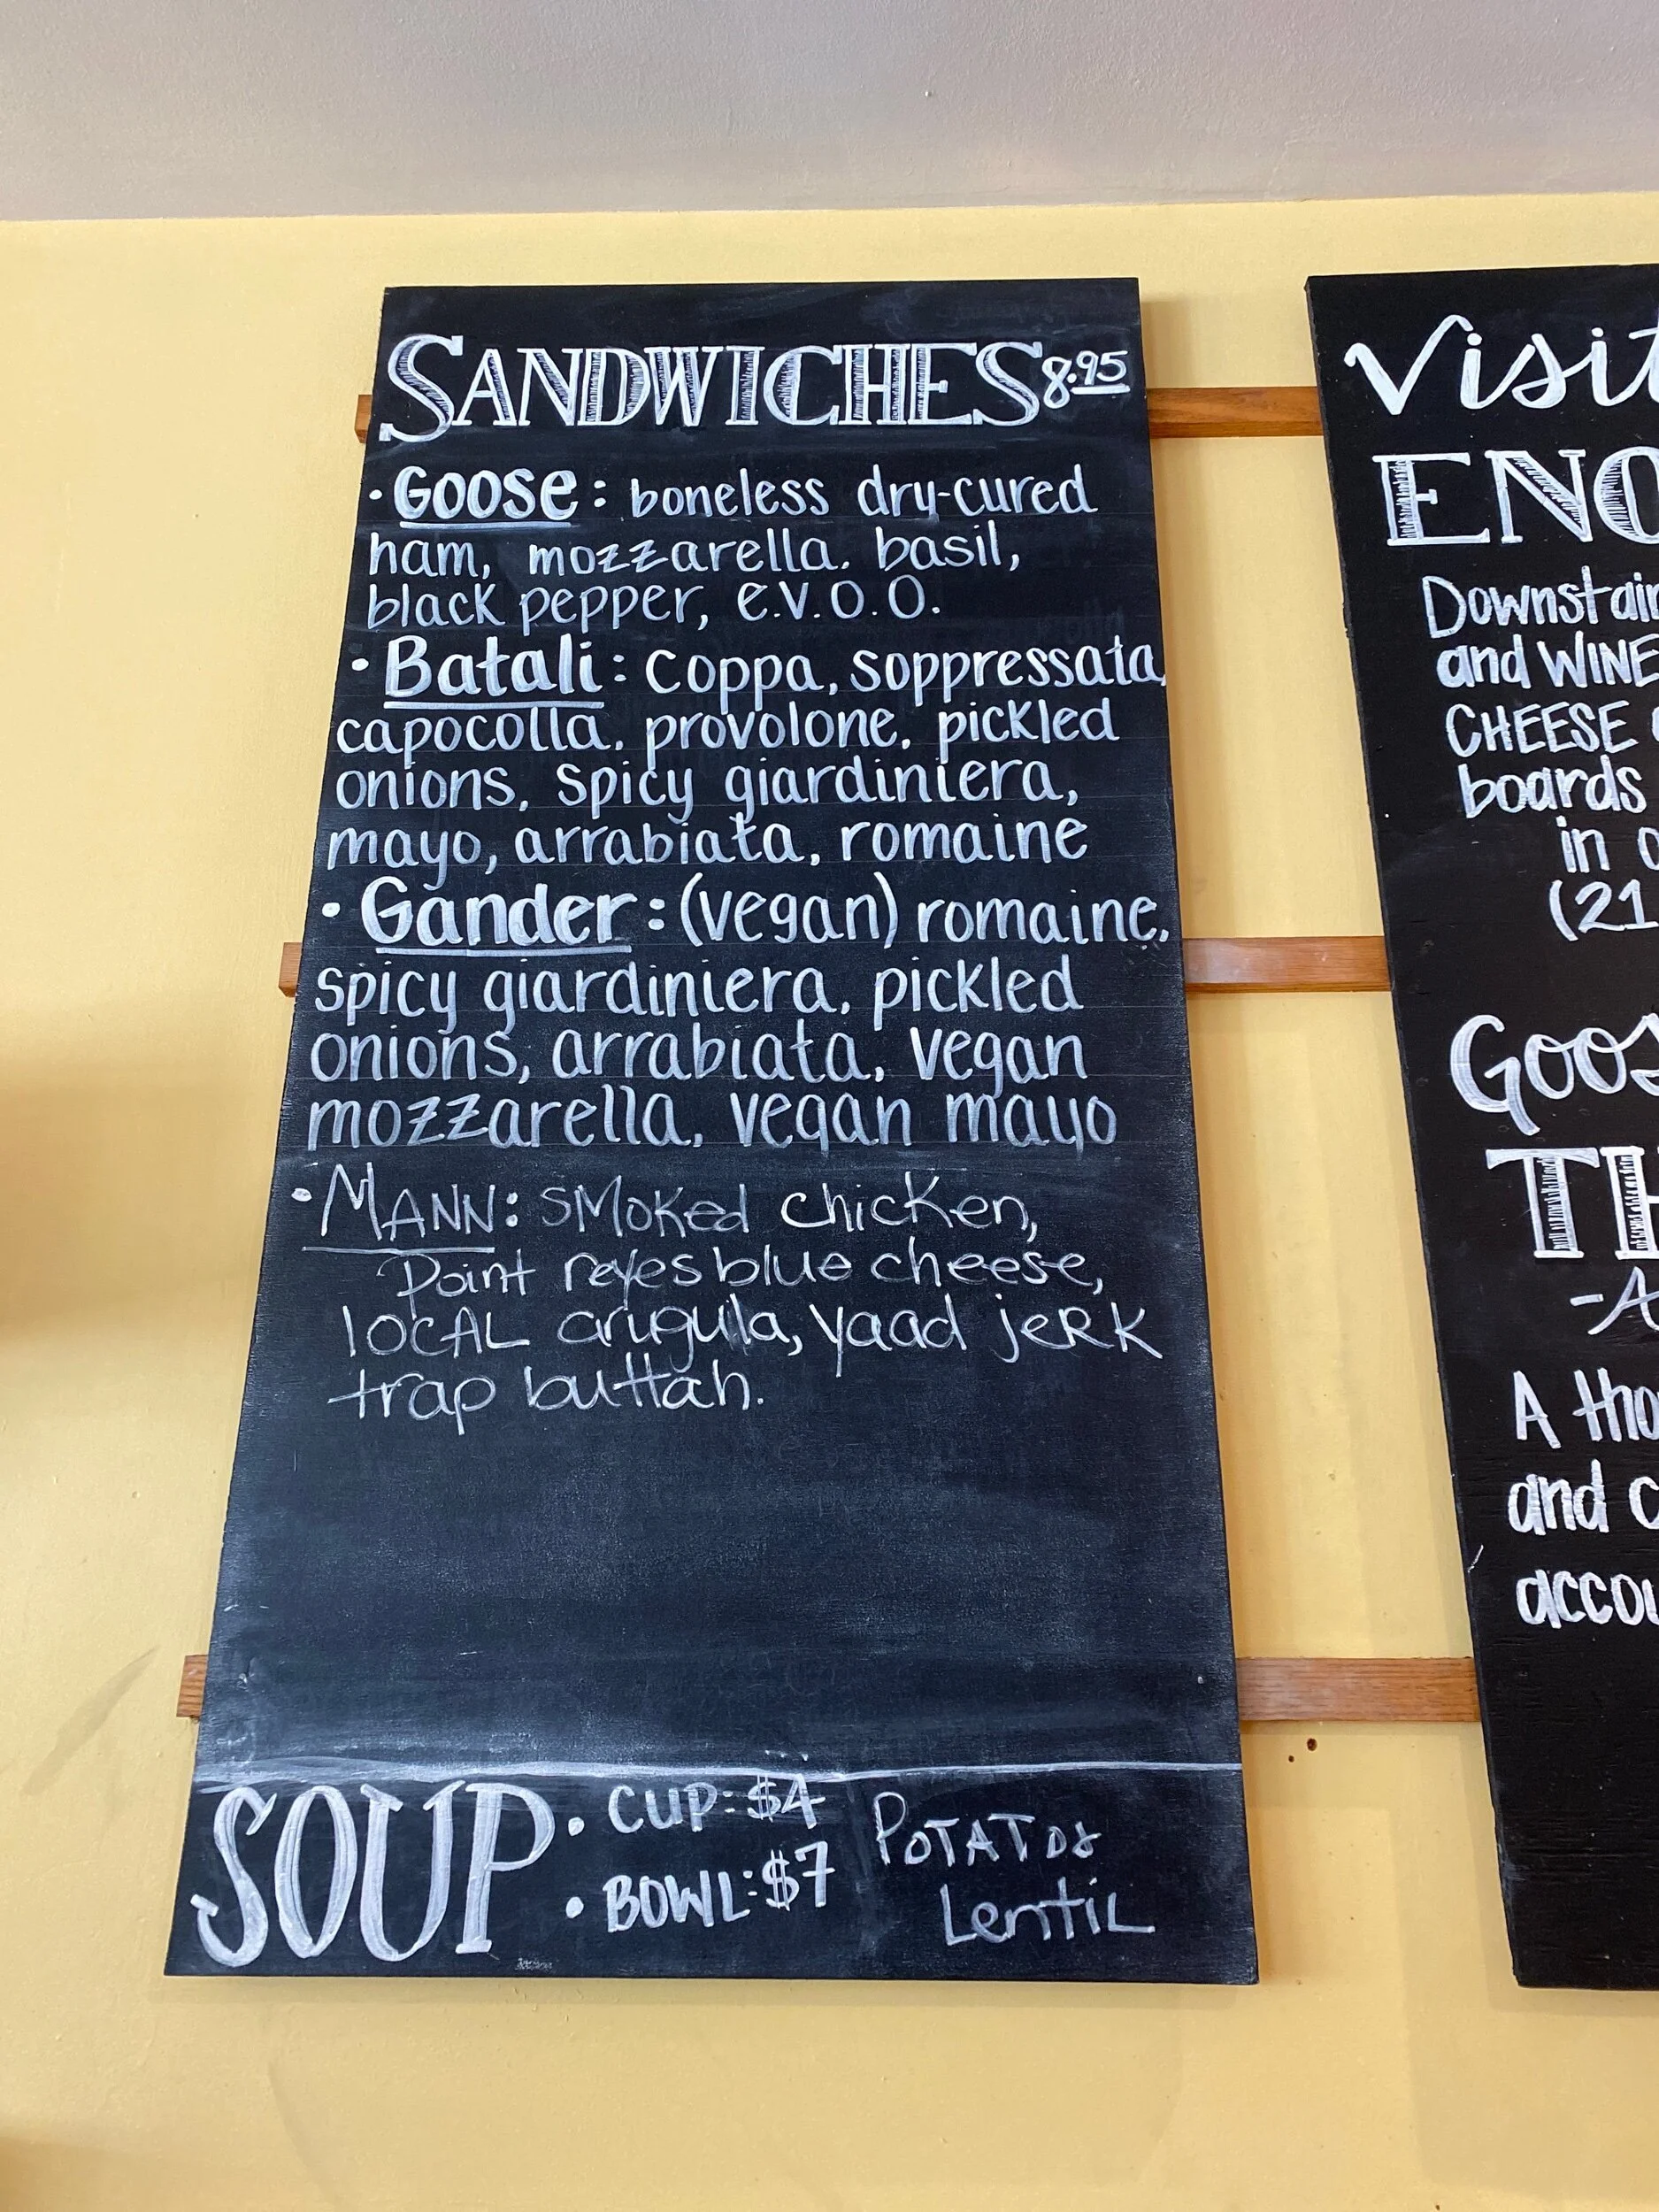 SANDWICHES 8.95
• Goose: boneless dry-cured
ham, mozzarella, basil,
black pepper, e.v.o.o.
• Batali: coppa, soppressata,
capocolla, provolone, pickled
onions, spicy giardiniera,
mayo, arrabiata, romaine
• Gander: (vegan) romaine,
spicy giardiniera, pickled
onions, arrabiata, vegan
mozzarella, vegan mayo
• MANN: smoked chicken,
Point reyes blue cheese,
local arugula, yaad jerk
trap buttah.
SOUP • CUP: $4
• BOWL: $7
Potatoe
Lentil
Visit
ENO
Downstair
and WINE
CHEESE
boards
in
(21
Goos
TH
-A
A tho
and c
accou